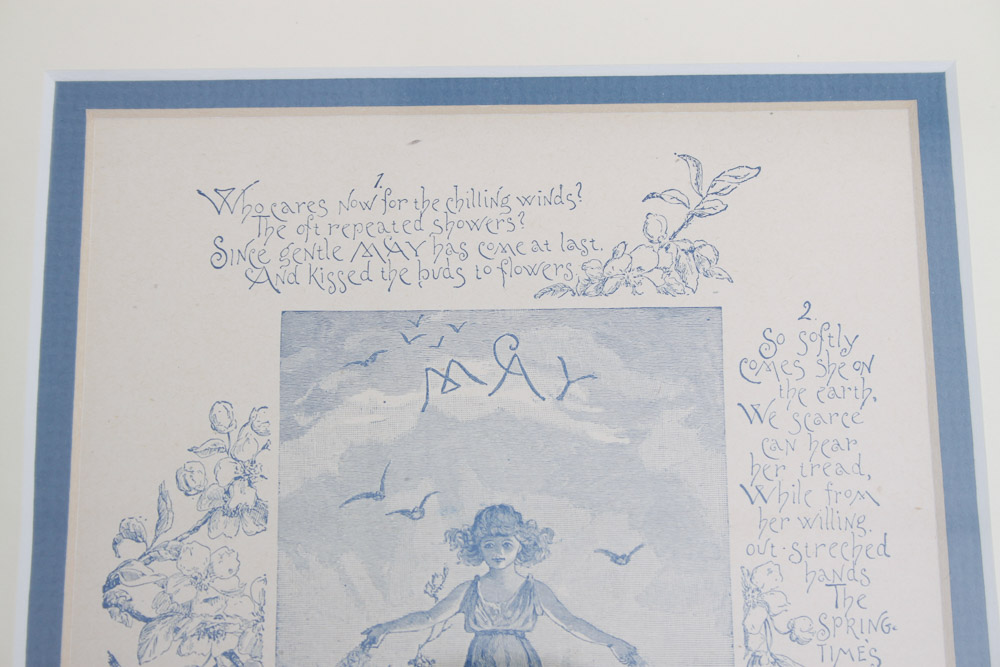 1.
Who cares now for the chilling winds?
The oft repeated showers?
Since gentle MAY has come at last,
And kissed the buds to flowers.
MAY
2.
So softly
comes she on
the earth,
We scarce
can hear
her tread,
While from
her willing
out-streched
hands
The
SPRING-
TIMES